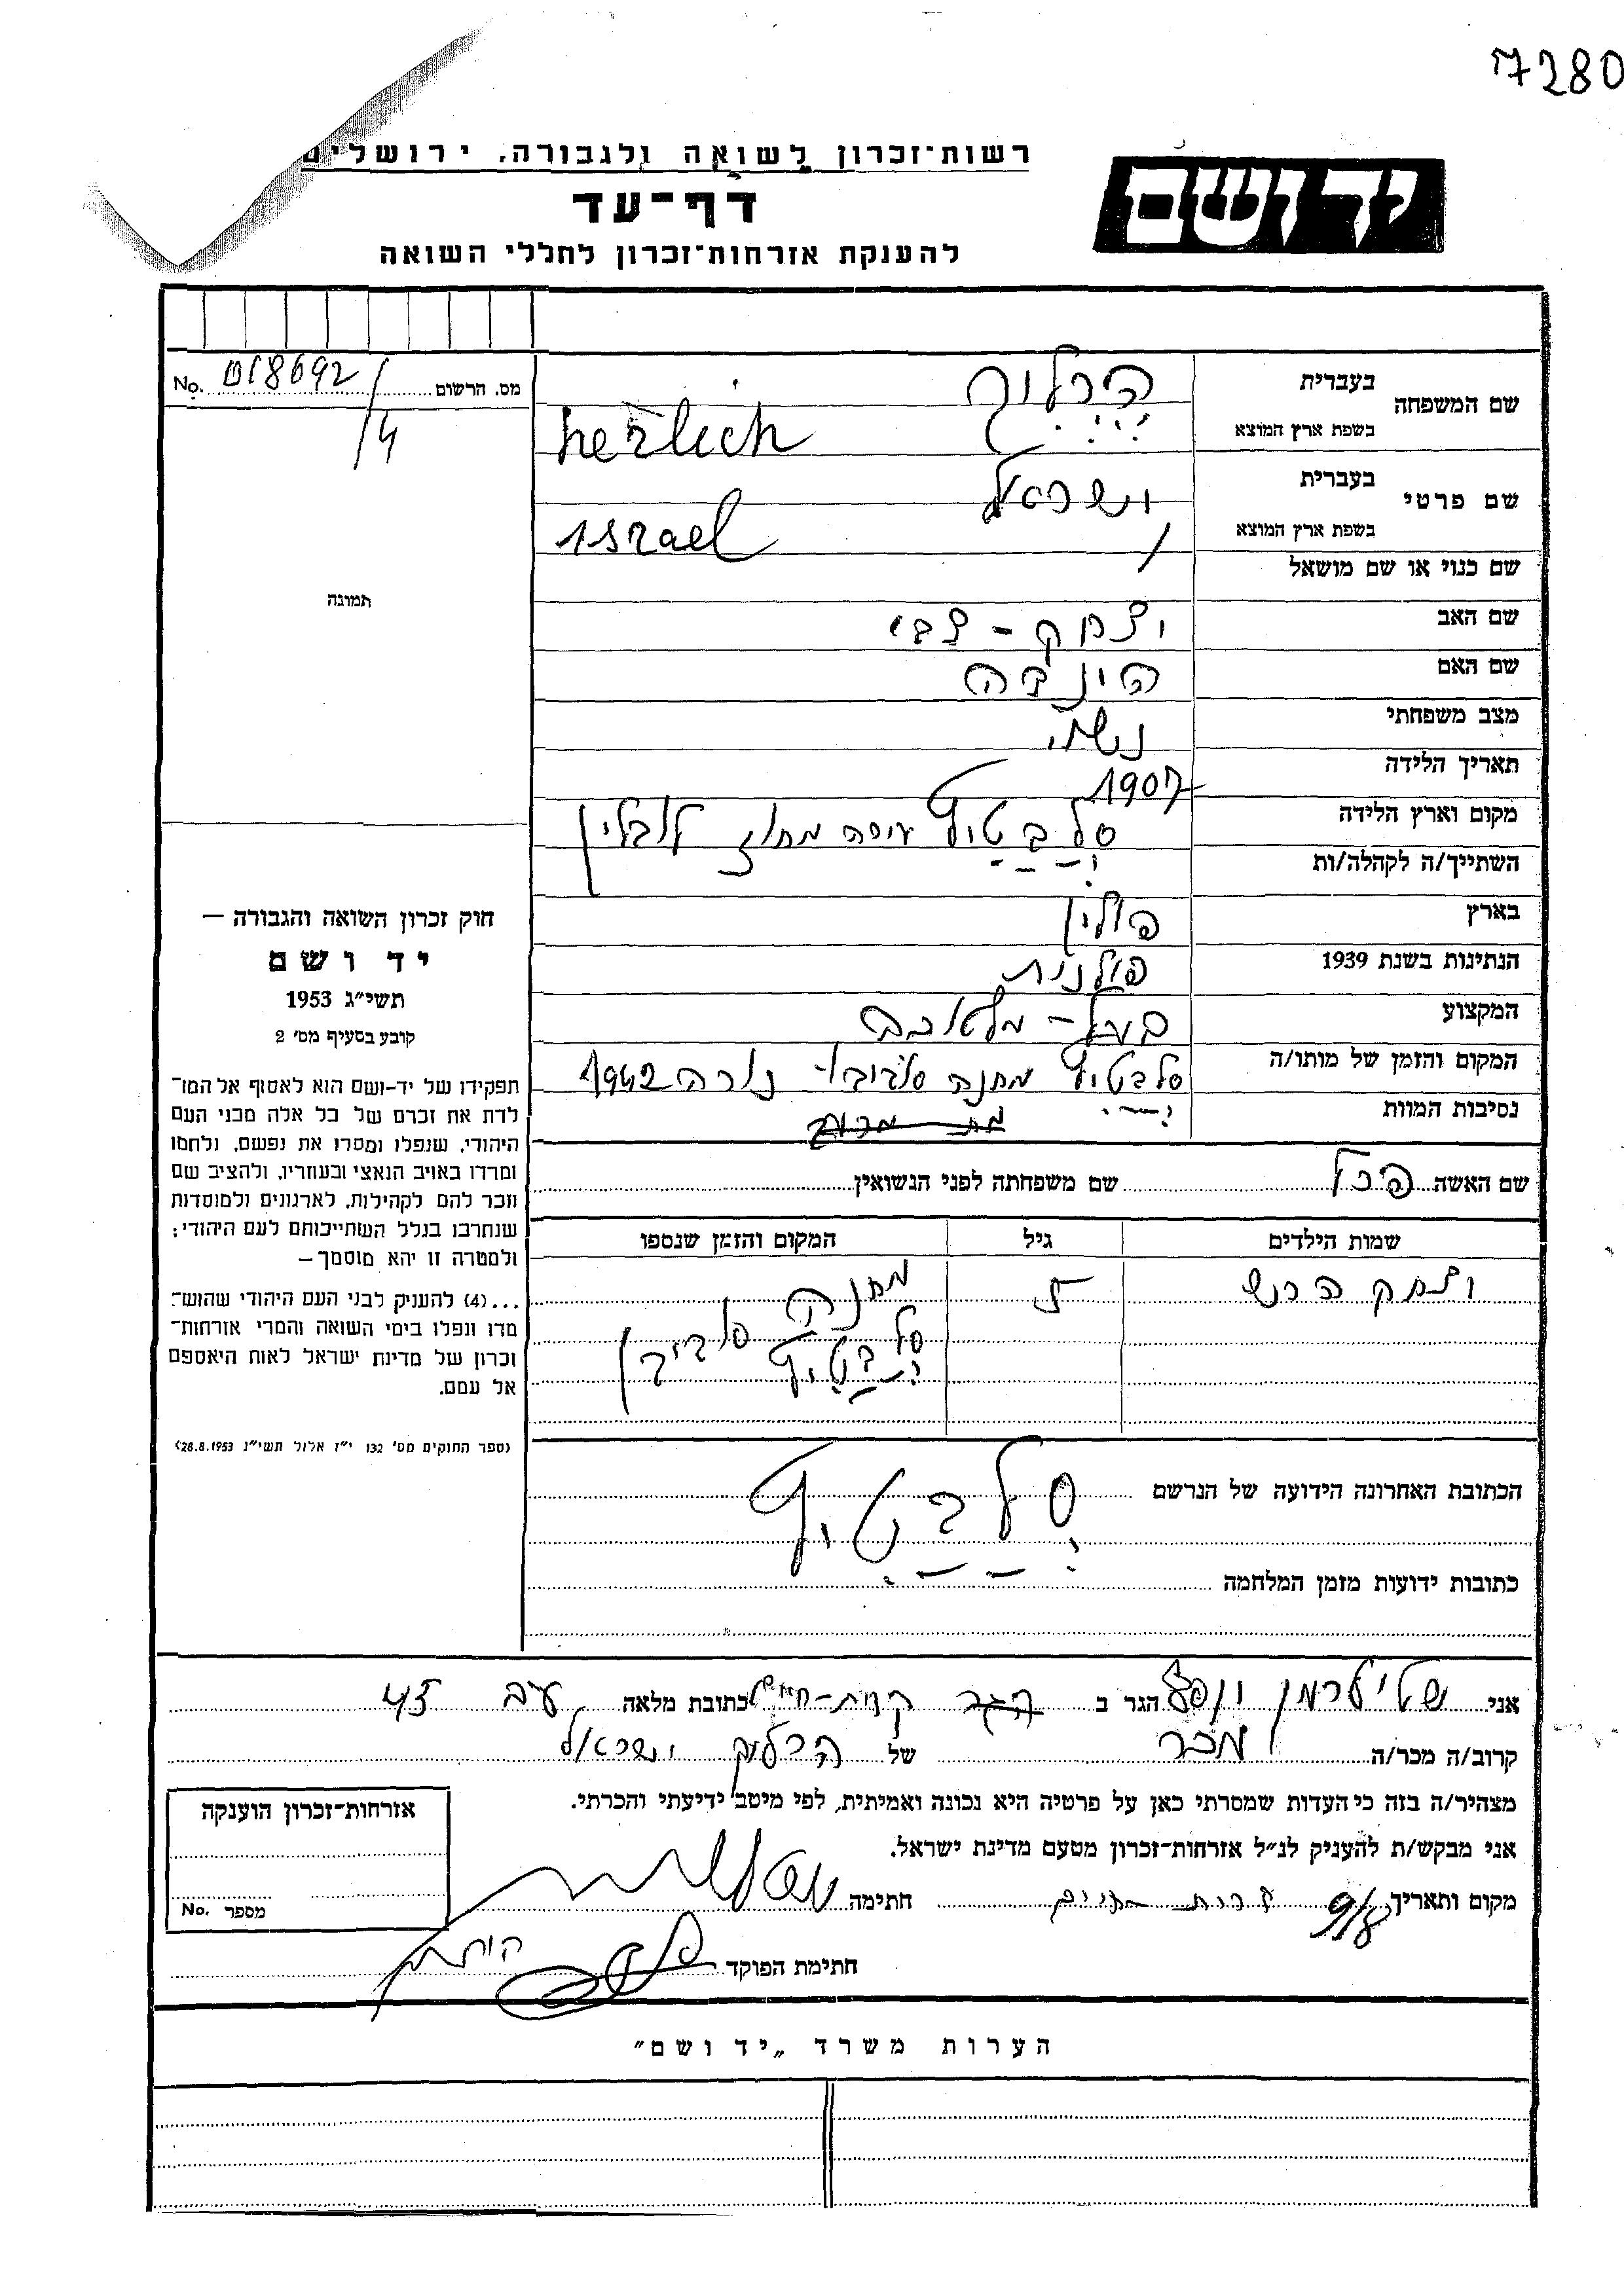 7280
רשות־זכרון לשואה ולגבורה, ירושלים
יד ושם
דף־עד
להענקת אזרחות־זכרון לחללי השואה
מס. הרשום 018692/4 No.
תמונה
שם המשפחה בעברית הרליך
בשפת ארץ המוצא herlich
שם פרטי בעברית ישראל
בשפת ארץ המוצא Israel
שם כנוי או שם מושאל
שם האב יצחק - צבי
שם האם הינדה
מצב משפחתי נשוי
תאריך הלידה 1907
מקום וארץ הלידה סלבטיץ מחוז לובלין
השתייך/ה לקהלה/ות
בארץ פולין
הנתינות בשנת 1939 פולנית
המקצוע בעל - מלאכה
המקום והזמן של מותו/ה סלבטיץ מחנה סוביבור 1942
נסיבות המוות
שם האשה פרל שם משפחתה לפני הנשואין
שמות הילדים גיל המקום והזמן שנספו
יצחק הרש 5 מחנה
סלבטיץ
הכתובת האחרונה הידועה של הנרשם סלבטיץ
כתובות ידועות מזמן המלחמה
חוק זכרון השואה והגבורה —
יד ושם
תשי״ג 1953
קובע בסעיף מס׳ 2
תפקידו של יד-ושם הוא לאסוף אל המו־
לדת את זכרם של כל אלה מבני העם
היהודי, שנפלו ומסרו את נפשם, נלחמו
ומרדו באויב הנאצי ובעוזריו, ולהציב שם
וזכר להם לקהילות, לארגונים ולמוסדות
שנחרבו בגלל השתייכותם לעם היהודי;
ולמטרה זו יהא מוסמך —
...(4) להעניק לבני העם היהודי שהוש־
מדו ונפלו בימי השואה והמרי אזרחות־
זכרון של מדינת ישראל לאות היאספם
אל עמם.
(ספר החוקים מס׳ 132 י״ז אלול תשי״ג 28.8.1953)
אני שטילרמן הגר ב קרית-חיים כתובת מלאה 43
קרוב/ה מכר/ה מכר של הרליך ישראל
מצהיר/ה בזה כי העדות שמסרתי כאן על פרטיה היא נכונה ואמיתית, לפי מיטב ידיעתי והכרתי.
אני מבקש/ת להעניק לנ״ל אזרחות־זכרון מטעם מדינת ישראל.
מקום ותאריך 9/8 קרית חיים חתימה
חתימת הפוקד
אזרחות־זכרון הוענקה
מספר No.
הערות משרד „יד ושם״